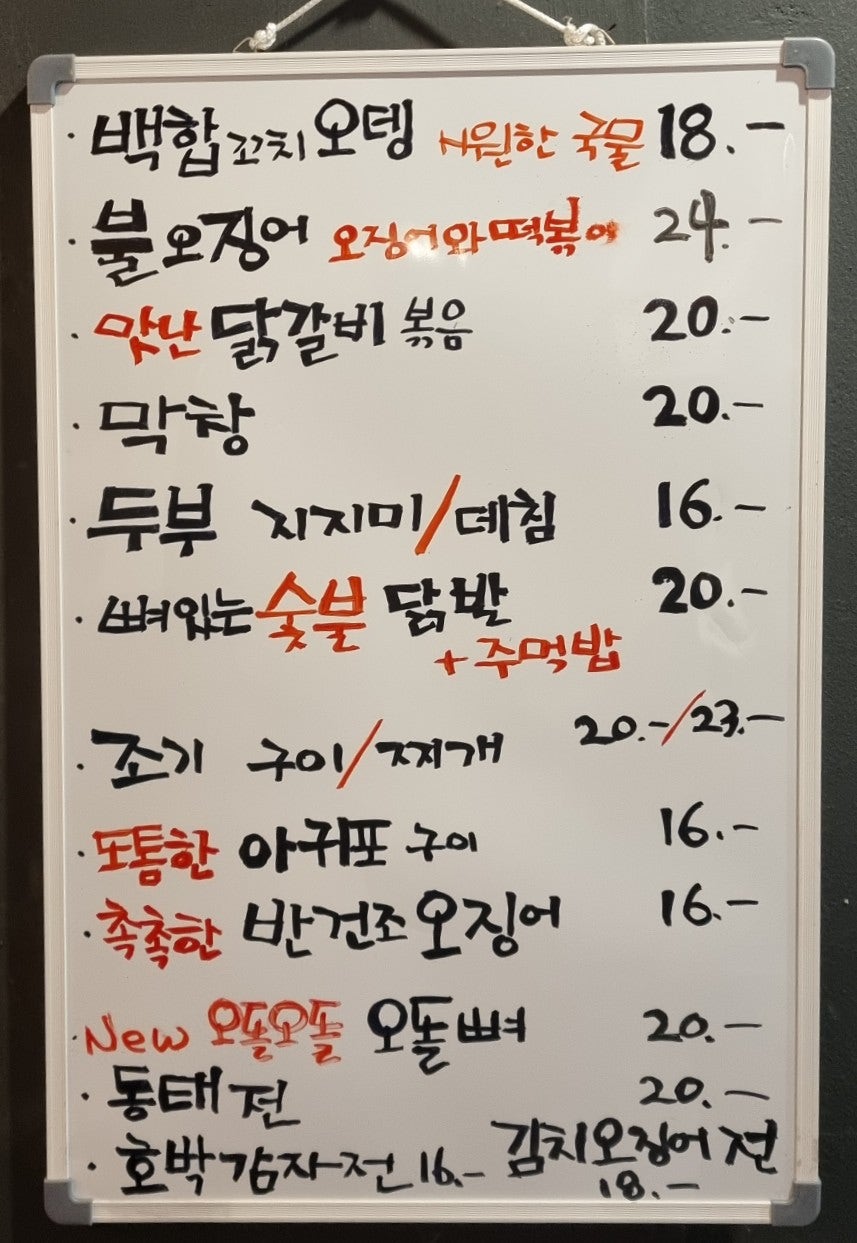 · 백합 꼬치 오뎅 시원한 국물 18.-
· 불오징어 오징어와 떡볶이 24.-
· 맛난 닭갈비 볶음 20.-
· 막창 20.-
· 두부 지지미/데침 16.-
· 뼈있는 숯불 닭발 20.-
+ 주먹밥
· 조기 구이/찌개 20.-/23.-
· 또톰한 아귀포 구이 16.-
· 촉촉한 반건조 오징어 16.-
· New 오돌오돌 오돌뼈 20.-
· 동태전 20.-
· 호박감자전 16.- 김치오징어전
18.-